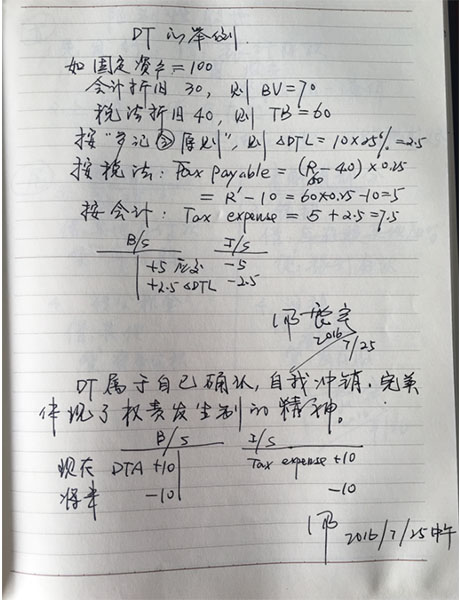 DT的举例
如固定资产=100
会计折旧 30, 则 BV=70
税法折旧 40, 则 TB=60
按"原则", 则 ΔDTL=10×25%=2.5
按税法: Tax payable = (R-40)×0.25
60
= R'-10 = 60×0.25-10=5
按会计: Tax expense = 5+2.5=7.5
B/S I/S
+5 应交 -5
+2.5 ΔDTL -2.5
2016
7/25
DT属于自己确认,自我冲销.完美
体现了权责发生制的精神。
B/S I/S
现在 DTA +10 Tax expense +10
将来 -10 -10
2016/7/25中午